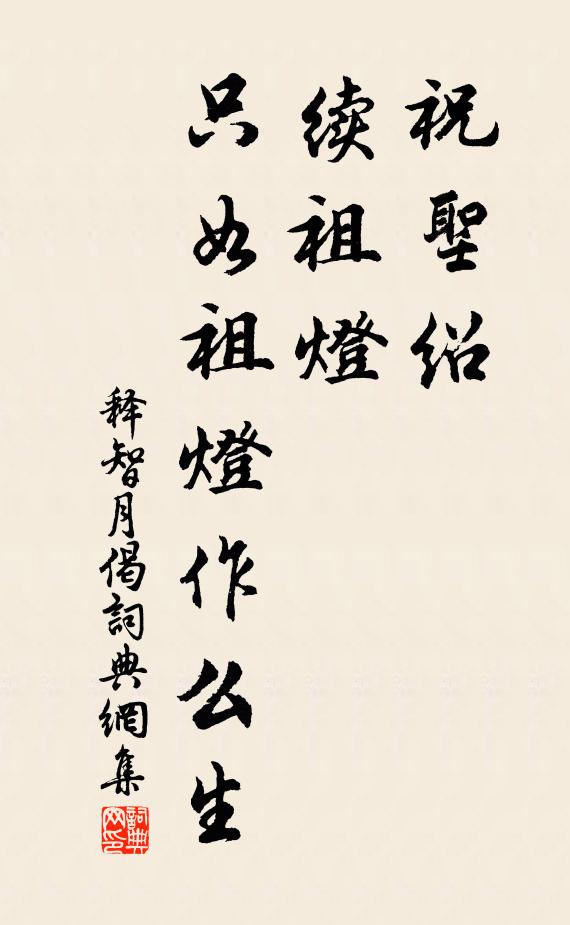 祝聖绍
续祖燈
只如祖燈作么生
释智月偈詞典網集
詞典网印